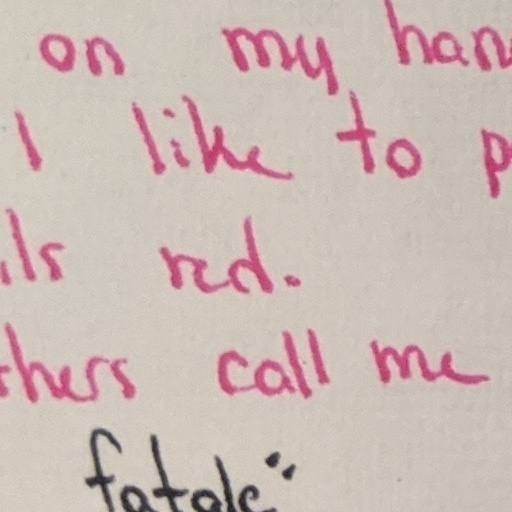 on my han
I like to p
ils red.
thers call me
fatale"